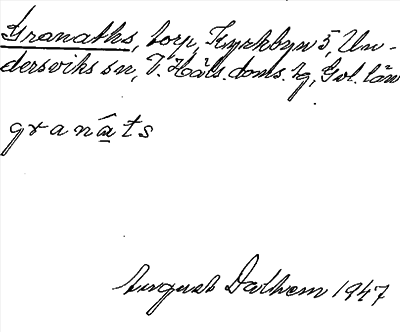 Granaths, torp, Kyrkbyn 5, Un-
dersviks sn, V. Häls. doms. hg, Gvl. län
granàts
August Dalhem 1947